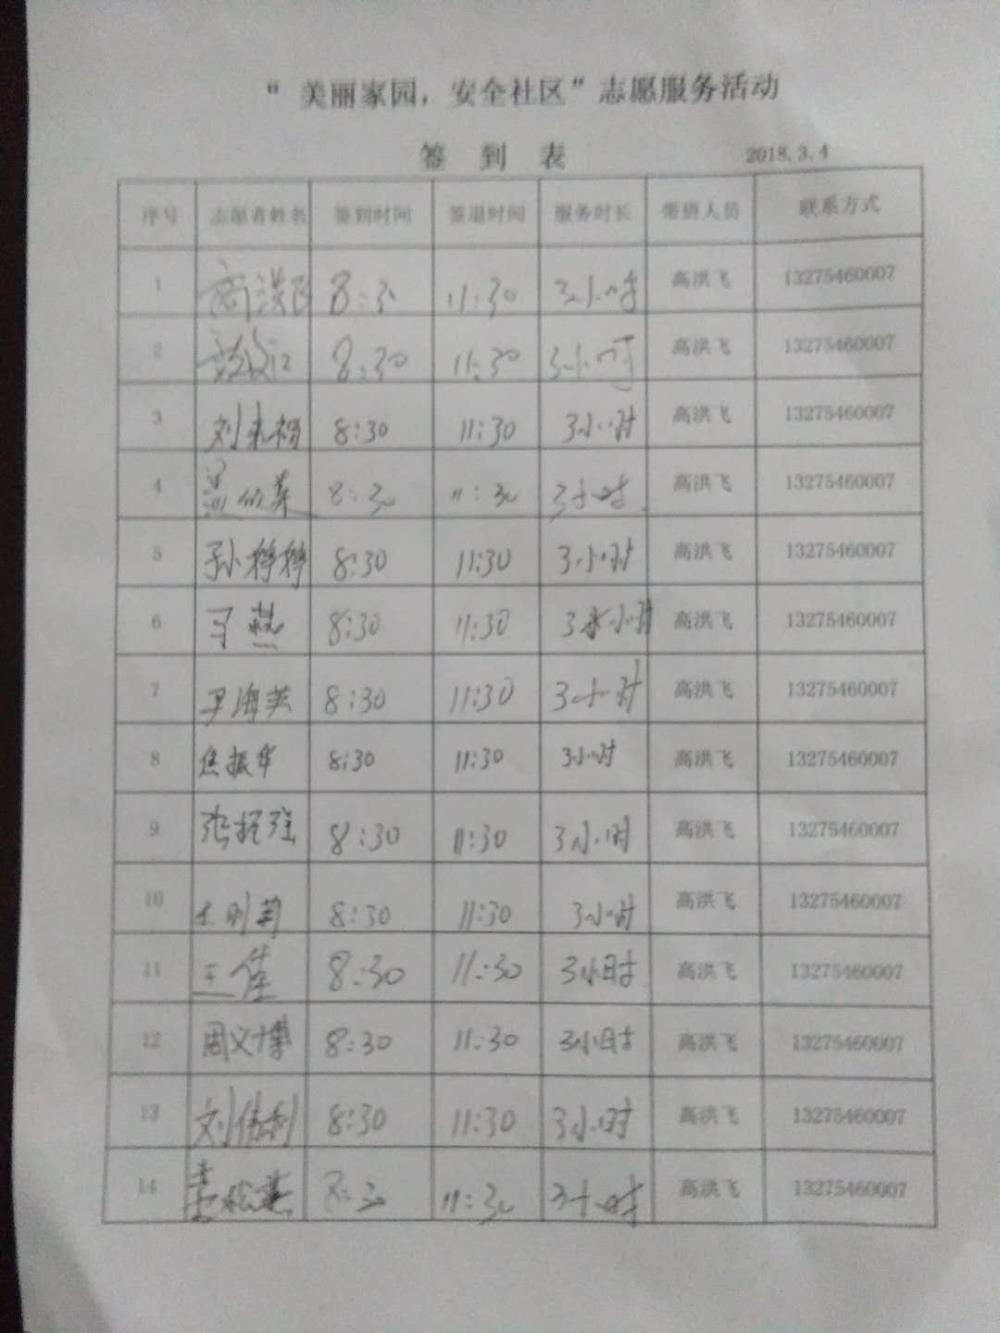 “美丽家园，安全社区”志愿服务活动
签 到 表 2018.3.4
序号 志愿者姓名 签到时间 签退时间 服务时长 带班人员 联系方式
1 高洪飞 8:30 11:30 3小时 高洪飞 13275460007
2 8:30 11:30 3小时 高洪飞 13275460007
3 8:30 11:30 3小时 高洪飞 13275460007
4 8:30 11:30 3小时 高洪飞 13275460007
5 孙婷婷 8:30 11:30 3小时 高洪飞 13275460007
6 8:30 11:30 3小时 高洪飞 13275460007
7 尹海英 8:30 11:30 3小时 高洪飞 13275460007
8 焦振华 8:30 11:30 3小时 高洪飞 13275460007
9 张振强 8:30 11:30 3小时 高洪飞 13275460007
10 8:30 11:30 3小时 高洪飞 13275460007
11 王佳 8:30 11:30 3小时 高洪飞 13275460007
12 周文博 8:30 11:30 3小时 高洪飞 13275460007
13 刘伟利 8:30 11:30 3小时 高洪飞 13275460007
14 8:30 11:30 3小时 高洪飞 13275460007